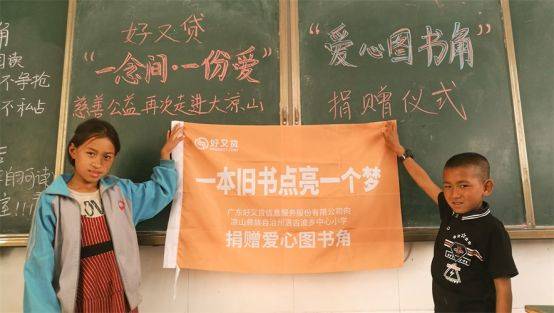 角
阅读
不争抢
不私占
的阅读
室!!!
好又贷
“一念间·一份爱”
慈善公益再次走进大凉山
“爱心图书角”
捐赠仪式
好又贷
一本旧书点亮一个梦
广东好又贷信息服务股份有限公司向
凉山彝族自治州洛古波乡中心小学
捐赠爱心图书角